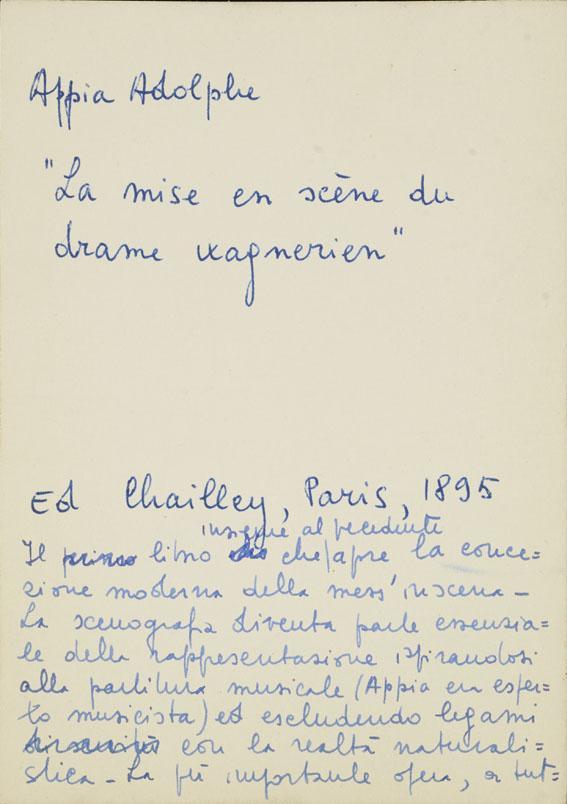 Appia Adolphe
"La mise en scène du
drame wagnerien"
Ed Chailley, Paris, 1895
insieme al precedente
Il primo libro che apre la conce=
zione moderna della mess'inscena -
La scenografia diventa parte essenzia=
le della rappresentazione ispirandosi
alla partitura musicale (Appia era esper=
to musicista) ed escludendo legami
con la realtà naturali=
stica - La più importante opera, a tut=